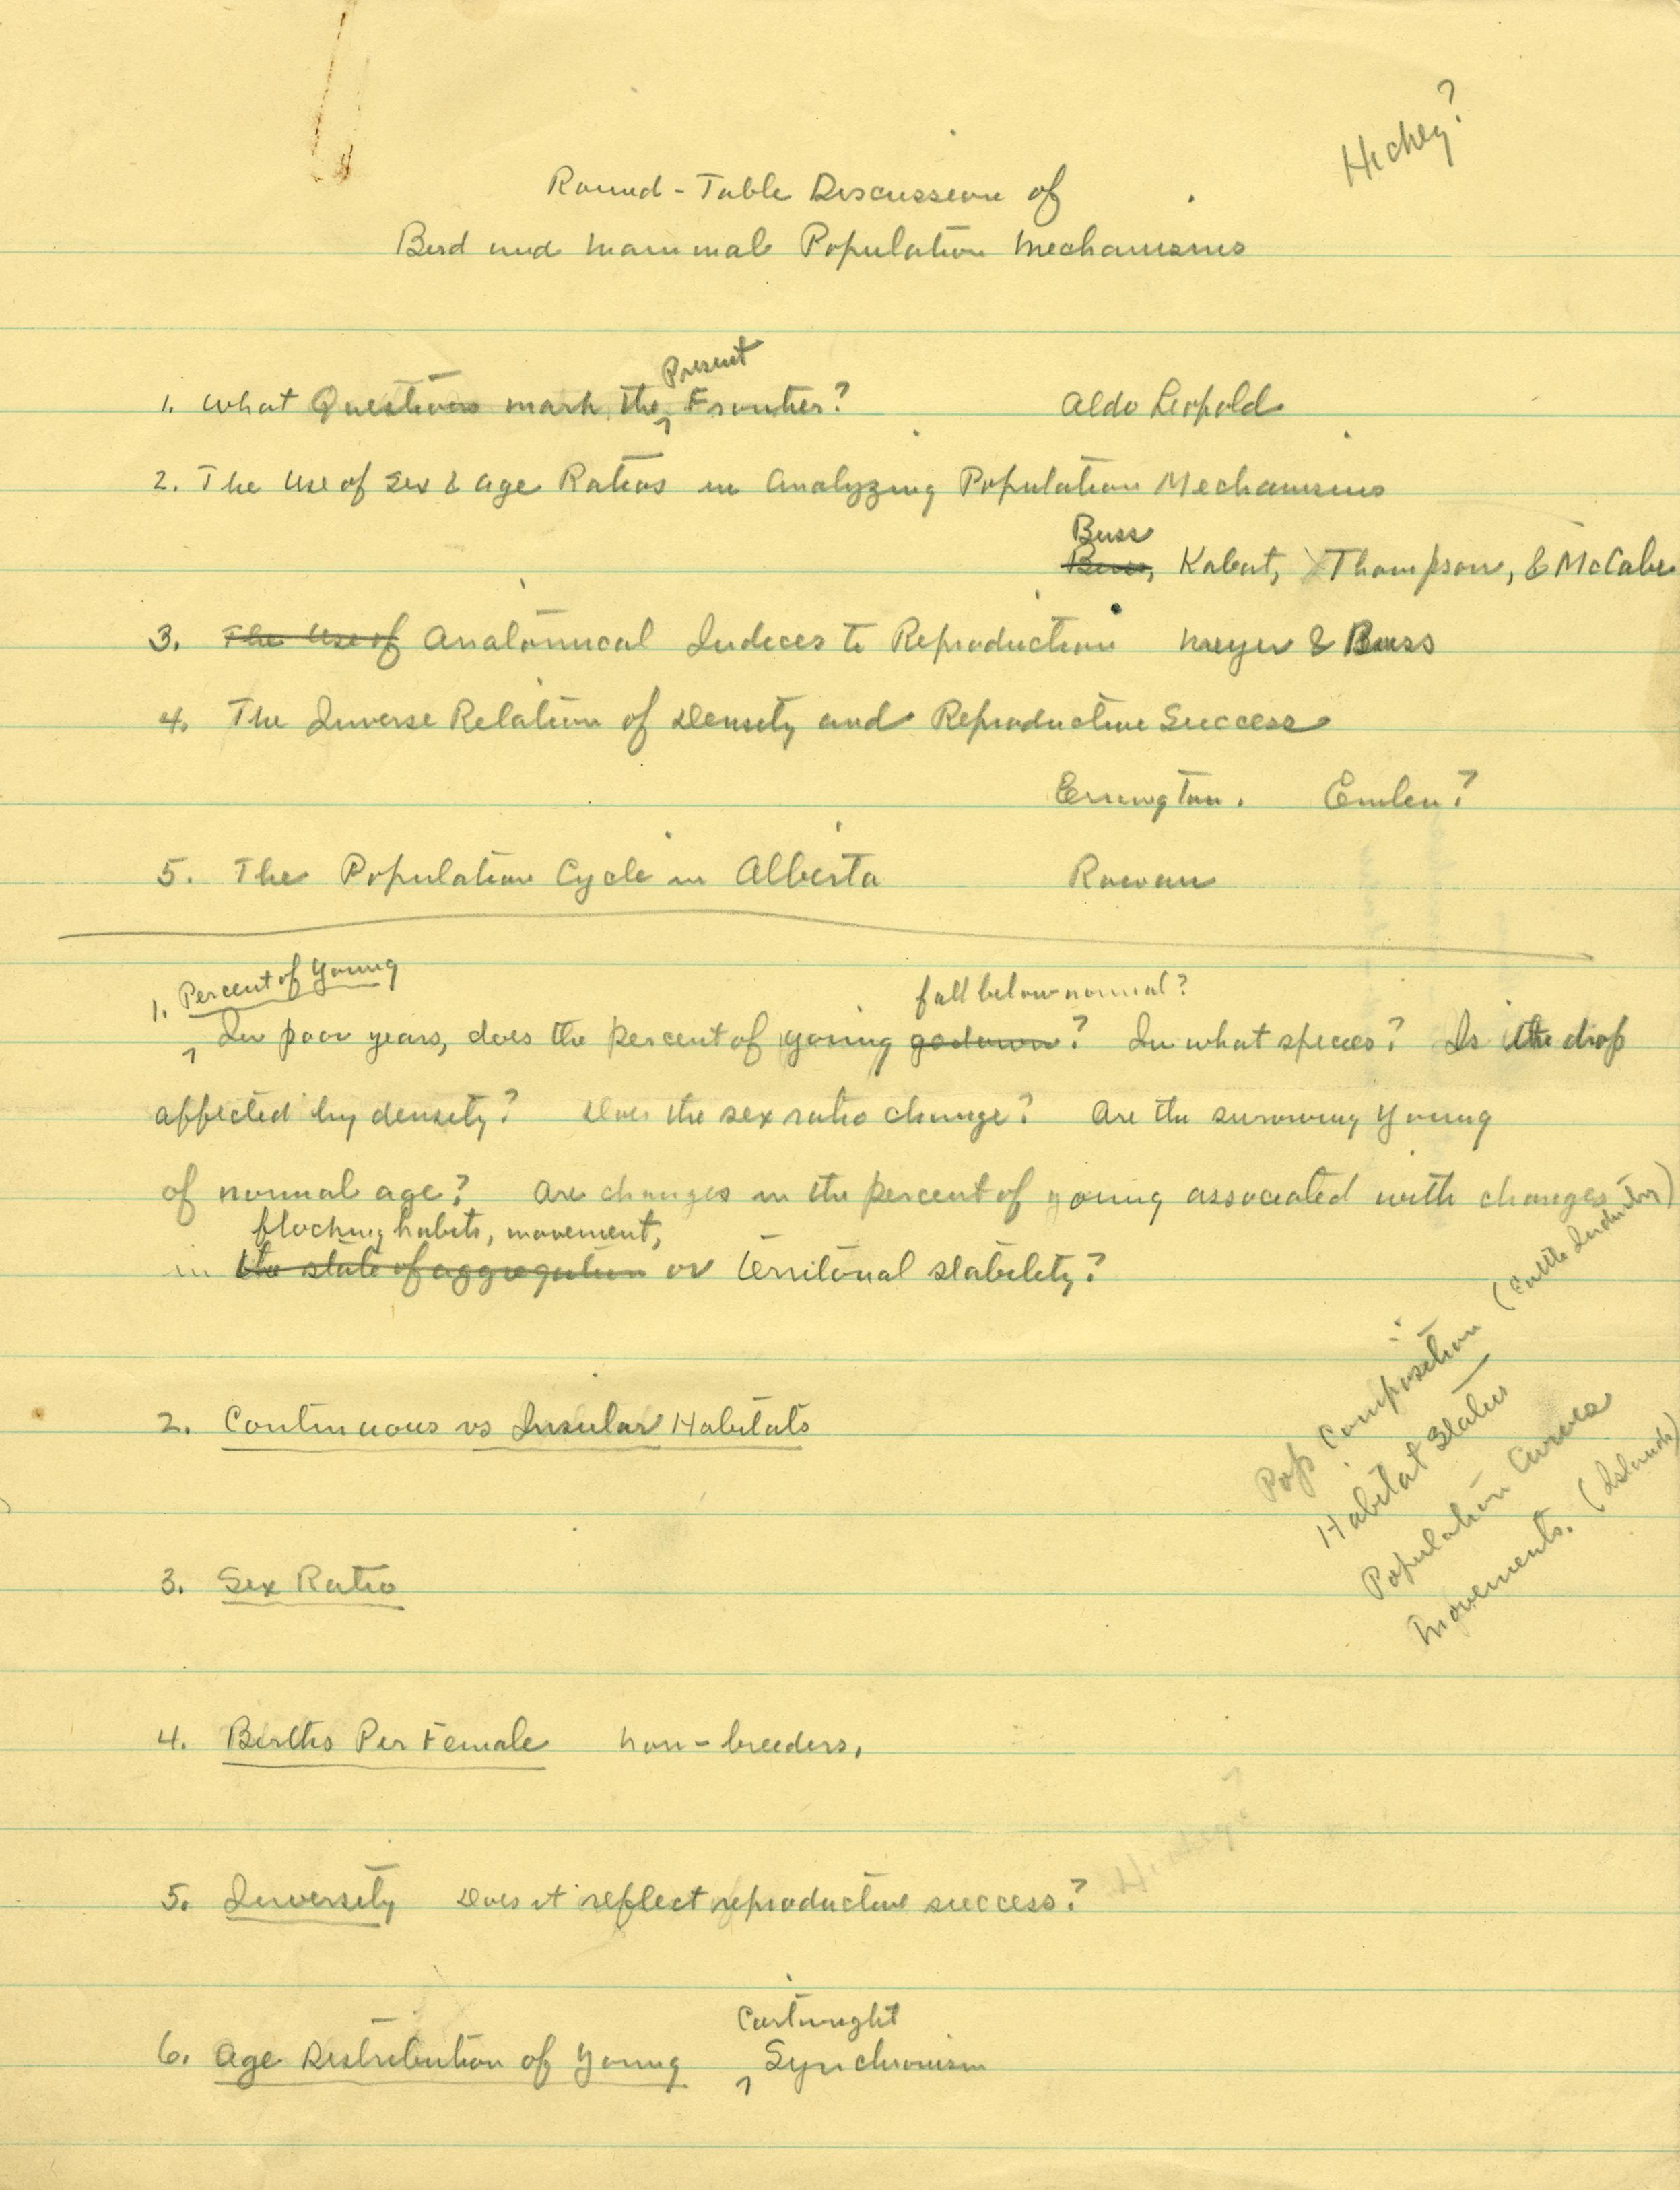 Hickey?
Round-Table Discussion of
Bird and Mammal Population Mechanisms
Present
1. What Questions mark the ^ Frontier? Aldo Leopold
2. The Use of Sex & Age Ratios in Analyzing Population Mechanisms
Buss
Buss, Kabat, Thompson, & McCabe
3. The Use of Anatomical Indices to Reproduction Meyer & Buss
4. The Inverse Relation of Density and Reproductive Success
Errington. Emlen?
5. The Population Cycle in Alberta Rowan
1. Percent of Young
fall below normal?
^ In poor years, does the percent of young go down? In what species? Is the drop
affected by density? Does the sex ratio change? Are the surviving young
of normal age? Are changes in the percent of young associated with changes
flocking habits, movement,
in the state of aggregation or territorial stability?
Pop Composition (Cattle Industry)
Habitat Status
Population Curves
Movements. (Islands)
2. Continuous vs Insular Habitats
3. Sex Ratio
4. Births Per Female Non-breeders,
5. Inversity Does it reflect reproductive success?
Cartwright
6. Age Distribution of Young ^ Synchronism